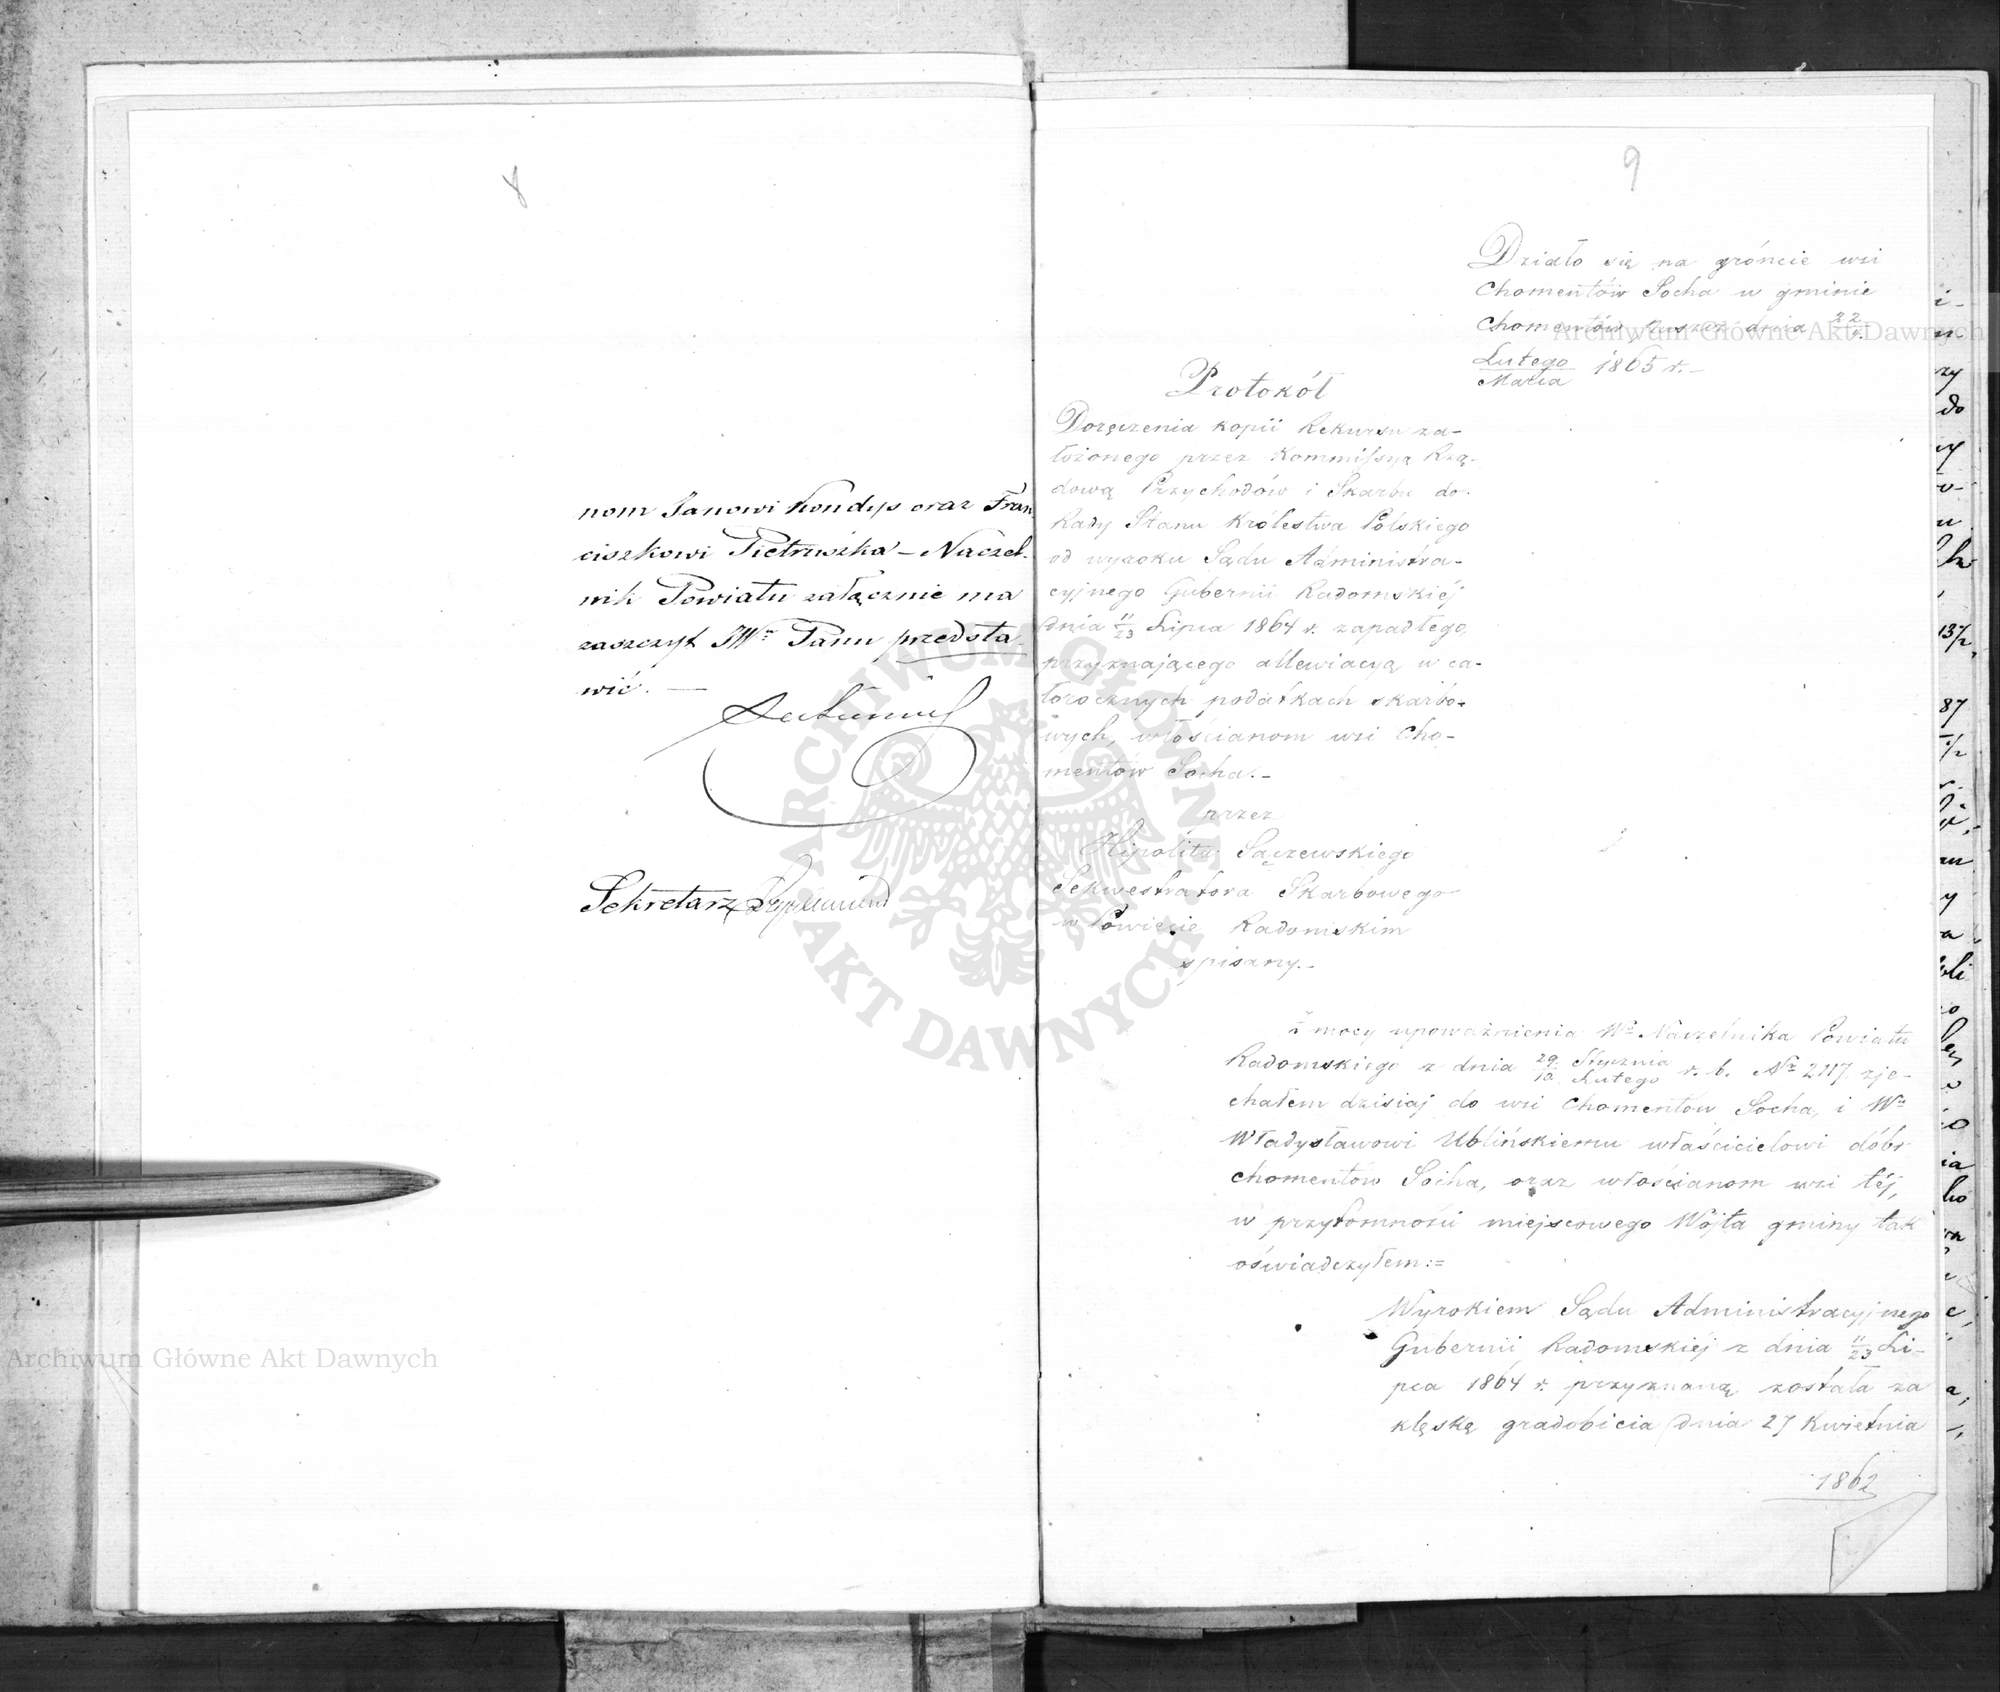 8
nom Janowi Kondys oraz Fran
ciszkowi Pietruszka – Naczel-
nik Powiatu załącznie ma
zaszczyt JWu Panu przedsta
wić. —
Sekretarz
9
Działo się na gróncie wsi
Chomentów Socha w gminie
Chomentów Puszcz dnia 22/
Lutego/Marca 1865 r. –
Protokół
Doręczenia kopii Rekursu za-
łożonego przez Kommissyą Rzą-
dową Przychodów i Skarbu do
Rady Stanu Królestwa Polskiego
od wyroku Sądu Administra-
cyjnego Gubernii Radomskiéj
dnia 11/23 Lipca 1864 r. zapadłego,
przyznającego allewiacyą w ca-
łorocznych podatkach skarbo-
wych, włościanom wsi Cho-
mentów Socha. –
przez
Hipolita Sączewskiego
Sekwestratora Skarbowego
w Powiecie Radomskim
spisany. –
Z mocy upoważnienia Wo Naczelnika Powiatu
Radomskiego z dnia 29/10 Stycznia/Lutego r. b. No 2117. zje-
chałem dzisiaj do wsi Chomentów Socha, i Wu
Władysławowi Ublińskiemu właścicielowi dóbr
Chomentów Socha, oraz włościanom wsi téj,
w przytomności miejscowego Wójta gminy tak
oświadczyłem:=
Wyrokiem Sądu Administracyjnego
Gubernii Radomskiéj z dnia 11/23 Li-
pca 1864 r. przyznaną została za
klęskę gradobicia dnia 27 Kwietnia
1862
Archiwum Główne Akt Dawnych
Archiwum Główne Akt Dawnych
ARCHIWUM GŁÓWNE AKT DAWNYCH